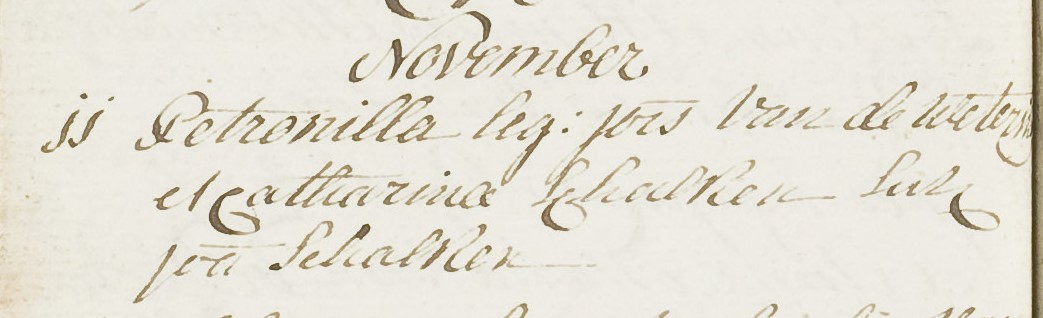 November
11 Petronilla leg: jōis Van de Wetering
et Catharinæ Schalken Susc
jōā Schalken